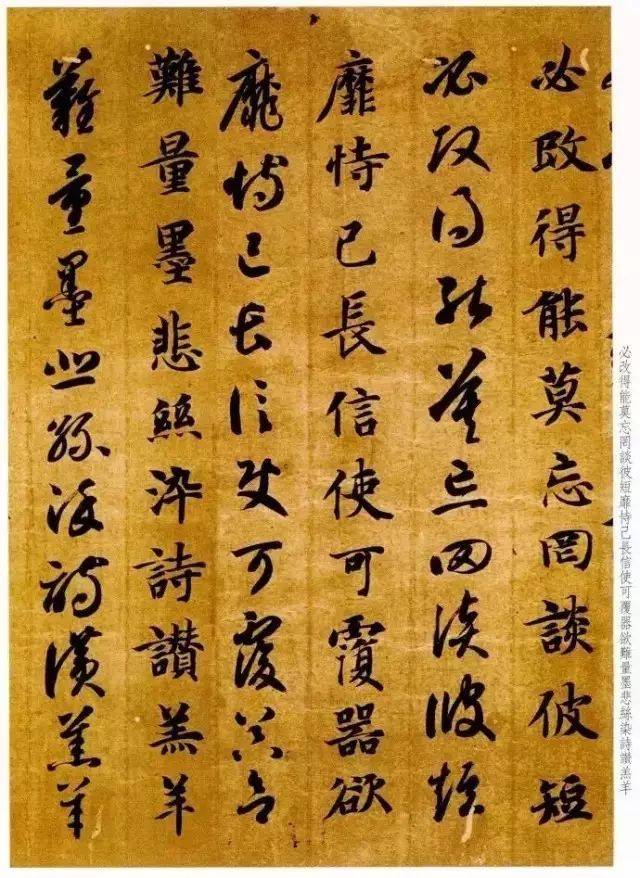 必改得能莫忘罔談彼短
必改得能莫忘罔談彼短
靡恃已長信使可覆器欲
靡恃已長信使可覆器欲
難量墨悲絲染詩讃羔羊
難量墨悲絲染詩讃羔羊
必改得能莫忘罔談彼短靡恃己長信使可覆器欲難量墨悲絲染詩讃羔羊